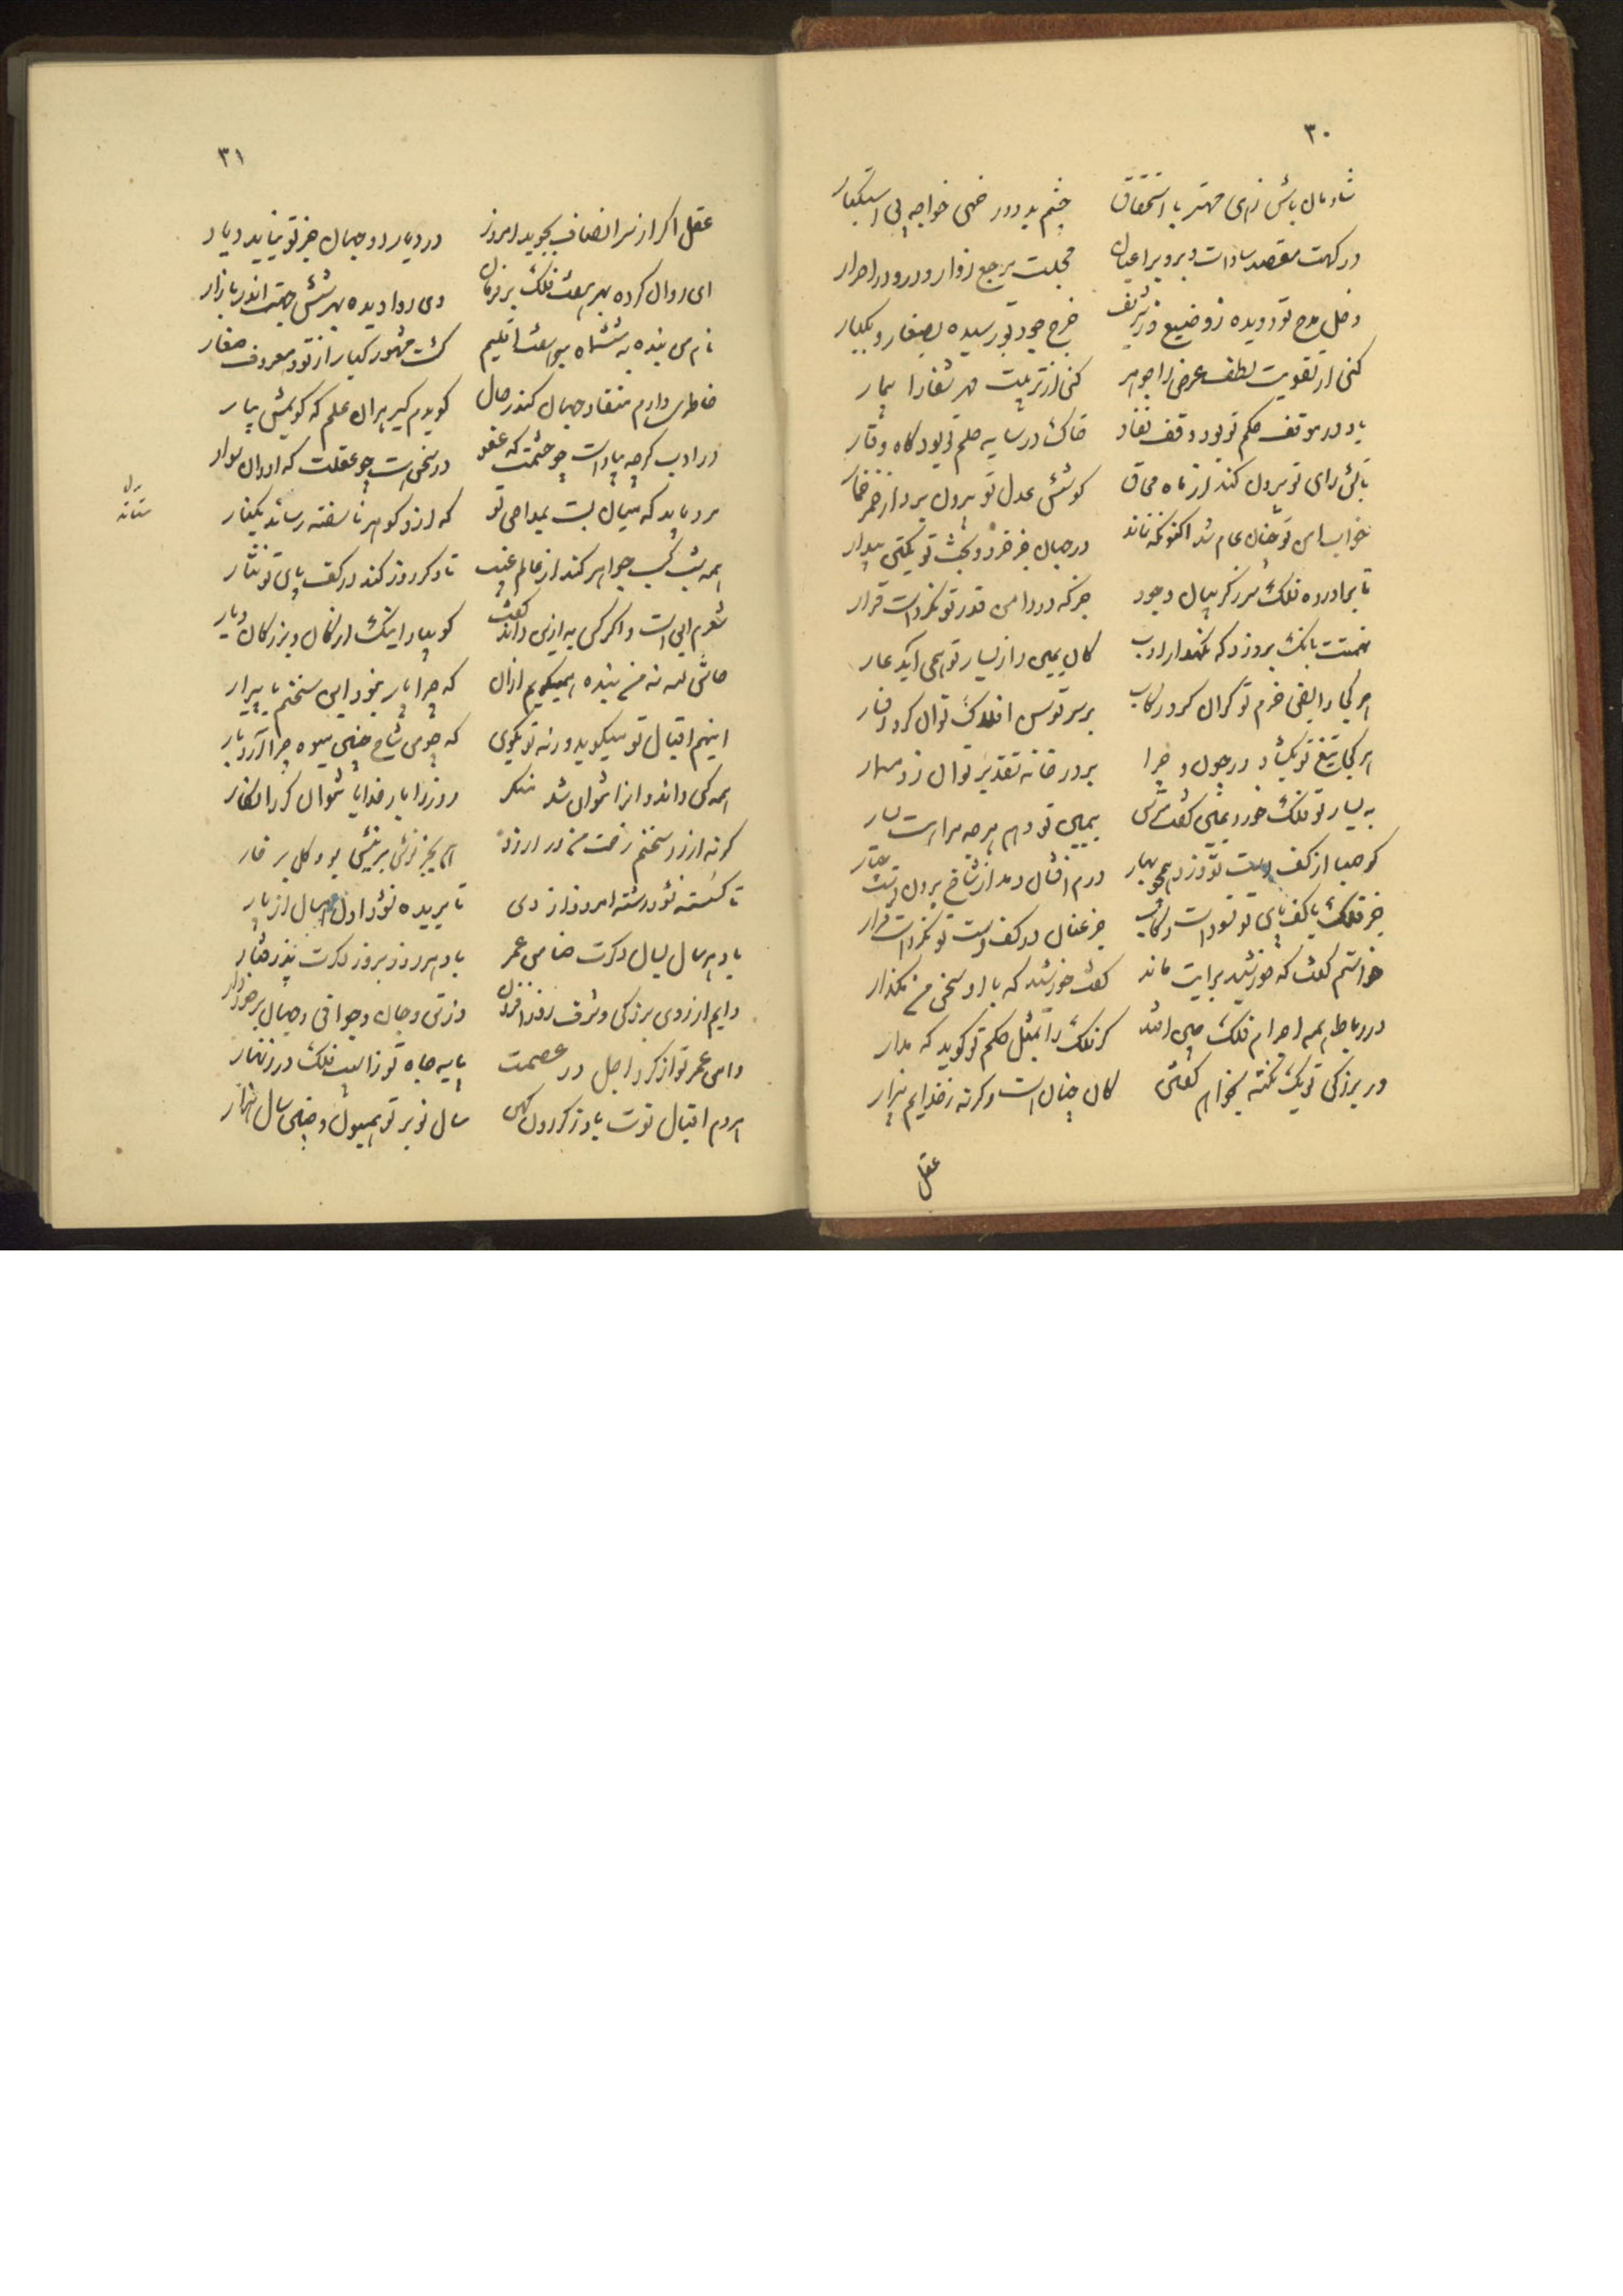 ۳۰
شادمان باش زهی مهتر با استحقاق چشم بد دور خهی خواجه بی استکبار
درگهت مقصد سادات و برو بر اعیان مجلست مرجع زوار و درو در احرار
دخل مدح تو دویده ز وضیع و ز شریف خرج جود تو رسیده بصغار و بکبار
کنی از تقویت لطف عرض را جوهر کنی از تربیت مهر شفا را بیمار
باد در موقف حکم تو بود وقف نفاذ خاک در سایه حلم تو بود کاه وقار
تابش رای تو بیرون کند از ماه محاق کوشش عدل تو بیرون برد از خمر خمار
خواب امن تو چنان عام شد اکنون که نماند در جهان جز خرد و بخش تو یکتن بیدار
تا بجا درده فلک سرز گریبان وجود جز که در دامن قدر تو نکردست قرار
همتت بانگ برو زد که نگهدار ادب کان یمین را ز یسار تو همی آید عار
هر کجا رایض حزم تو گران کرد رکاب بر سر توسن افلاک توان کرد افسار
هر کجا تیغ تو بگشاد در چون و چرا بر در خانه تقدیر توان زد مسمار
به یسار تو فلک خورد یمینی گفتش بیمین تو دهم هرچه مرا هست یسار
گر صبا از کف دست تو وزد همچو بهار درم افشان دمد از شاخ برون دست چنار
جز فلک با کف پای تو نسودست رکاب جز عنان در کف دست تو نکردست قرار
خواستم گفت که خورشید برایت ماند گفت خورشید که با او سخن من بگذار
در رباط همه اجرام فلک می افتد گر فلک را بمثل حکم تو گوید که مدار
در بزرگی تو یک نکته بخواهم گفتن کان چنان است و گرنه ز خدایم بیزار
عقل
۳۱
عقل اگر از سر انصاف بجوید امروز در دیار دو جهان جز تو نیابد دیار
ای روان کرده بهر هفت فلک بر فرمان وی روا دیده بهر شش جهت اندر بازار
نام من بنده به ششماه بهر هفت اقلیم گشت مشهور کبار از تو و معروف صغار
خاطری دارم منقاد چنان کاندر حال گویدم گیر هر آن علم که گویمش بیار
در ادب گرچه پیاده ست چو خشمت که عفو در سخن هست چو عقلت که اوان سوار
مرد باید که میان بست بمداحی تو که از دو گوهر ناسفته رساند بکنار
همه شب کسب جواهر کند از عالم غیب تا دگر روز کند در کف پای تو نثار
شعرم این است و اگر کس به ازین داند گفت گو بیار اینک ارکان و بزرگان دیار
حاش لله نه من بنده همیگویم ازان که چرا بار بخود این سخنم با پیرار
اینهم اقبال تو میگوید ورنه تو بگوی که چو من شاخ چنین میوه چرا آرد بار
همه کس داند و انرا نتوان شد منکر روز را بار خدایا نتوان کرد انکار
گرنه از زر سخنم رخت من در ارزد
تا گسسته نشود رشته امروز از دی تا بریده نشود اول امسال از پار
باد هر سال بسال دگرت ضامن عمر باد هر روز بروز دگرت پذرفتار
دایم از روی بزرگی و شرف روز افزون وز تن و جان و جوانی و جهان برخوردار
دامن عمر تو از گرد اجل در عصمت پایه جاه تو ز آسیب فلک در زنهار
هر دم اقبال نوت باد ز گردون کهن سال نو بر تو همیون و چنین سال هزار